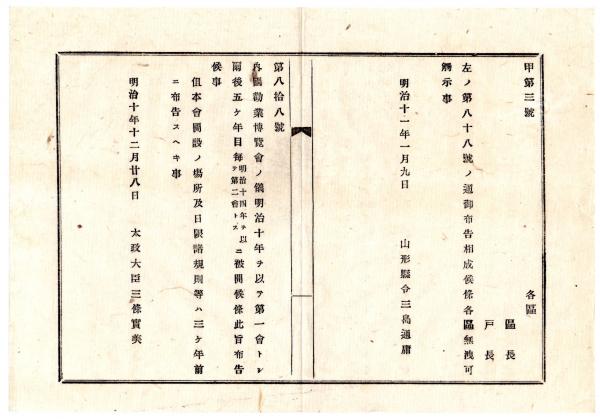 甲第三號
各區
區長
戸長
左ノ第八十八號ノ通御布告相成候條各區無洩可
觸示事
明治十一年一月九日 山形縣令三島通庸
第八拾八號
內國勸業博覽會ノ儀明治十年ヲ以テ第一會トシ
爾後五ケ年目每ニ 明治十四年ヲ以テ第二會トス 被開候條此旨布告
候事
但本會開設ノ塲所及日限諸規則等ハ三ケ年前
ニ布告スヘキ事
明治十年十二月廿八日 太政大臣三條實美